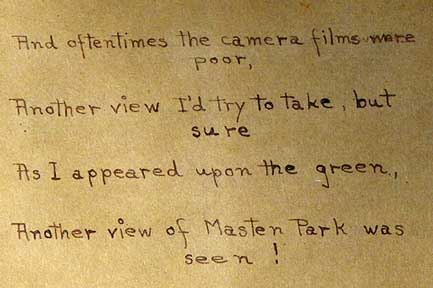 And oftentimes the camera films were
poor,
Another view I'd try to take, but
sure
As I appeared upon the green,
Another view of Masten Park was
seen!